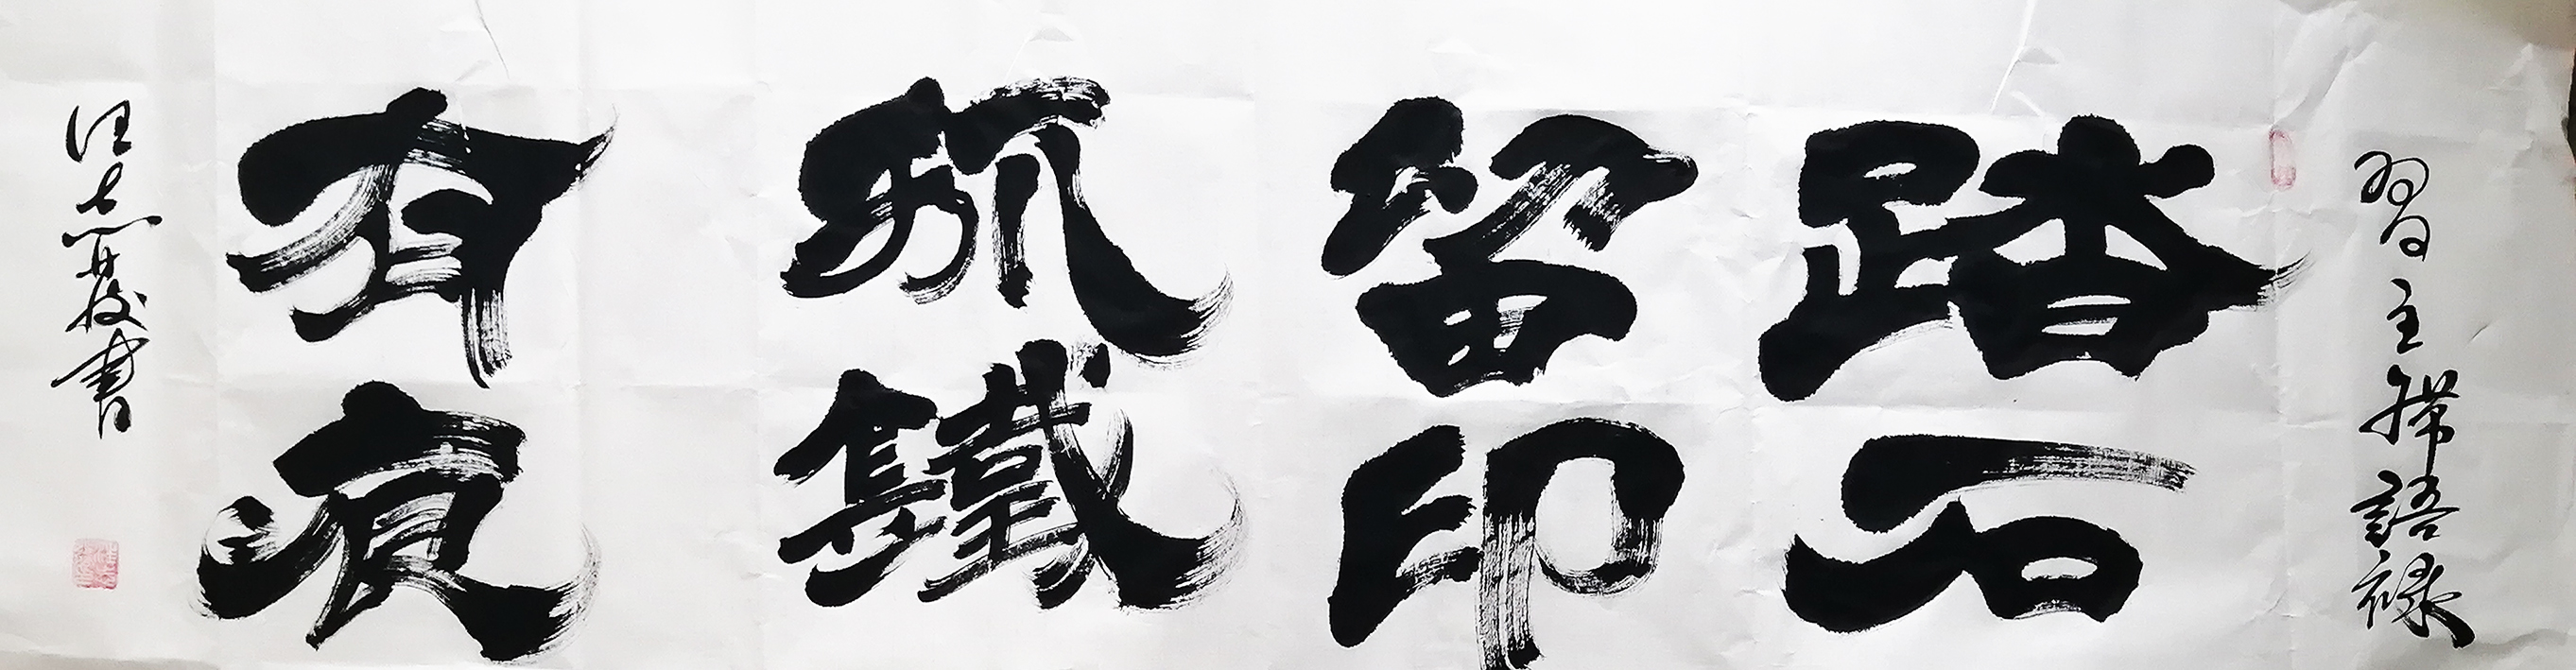 習主席語錄
踏石
留印
抓鐵
有痕
汪志 書